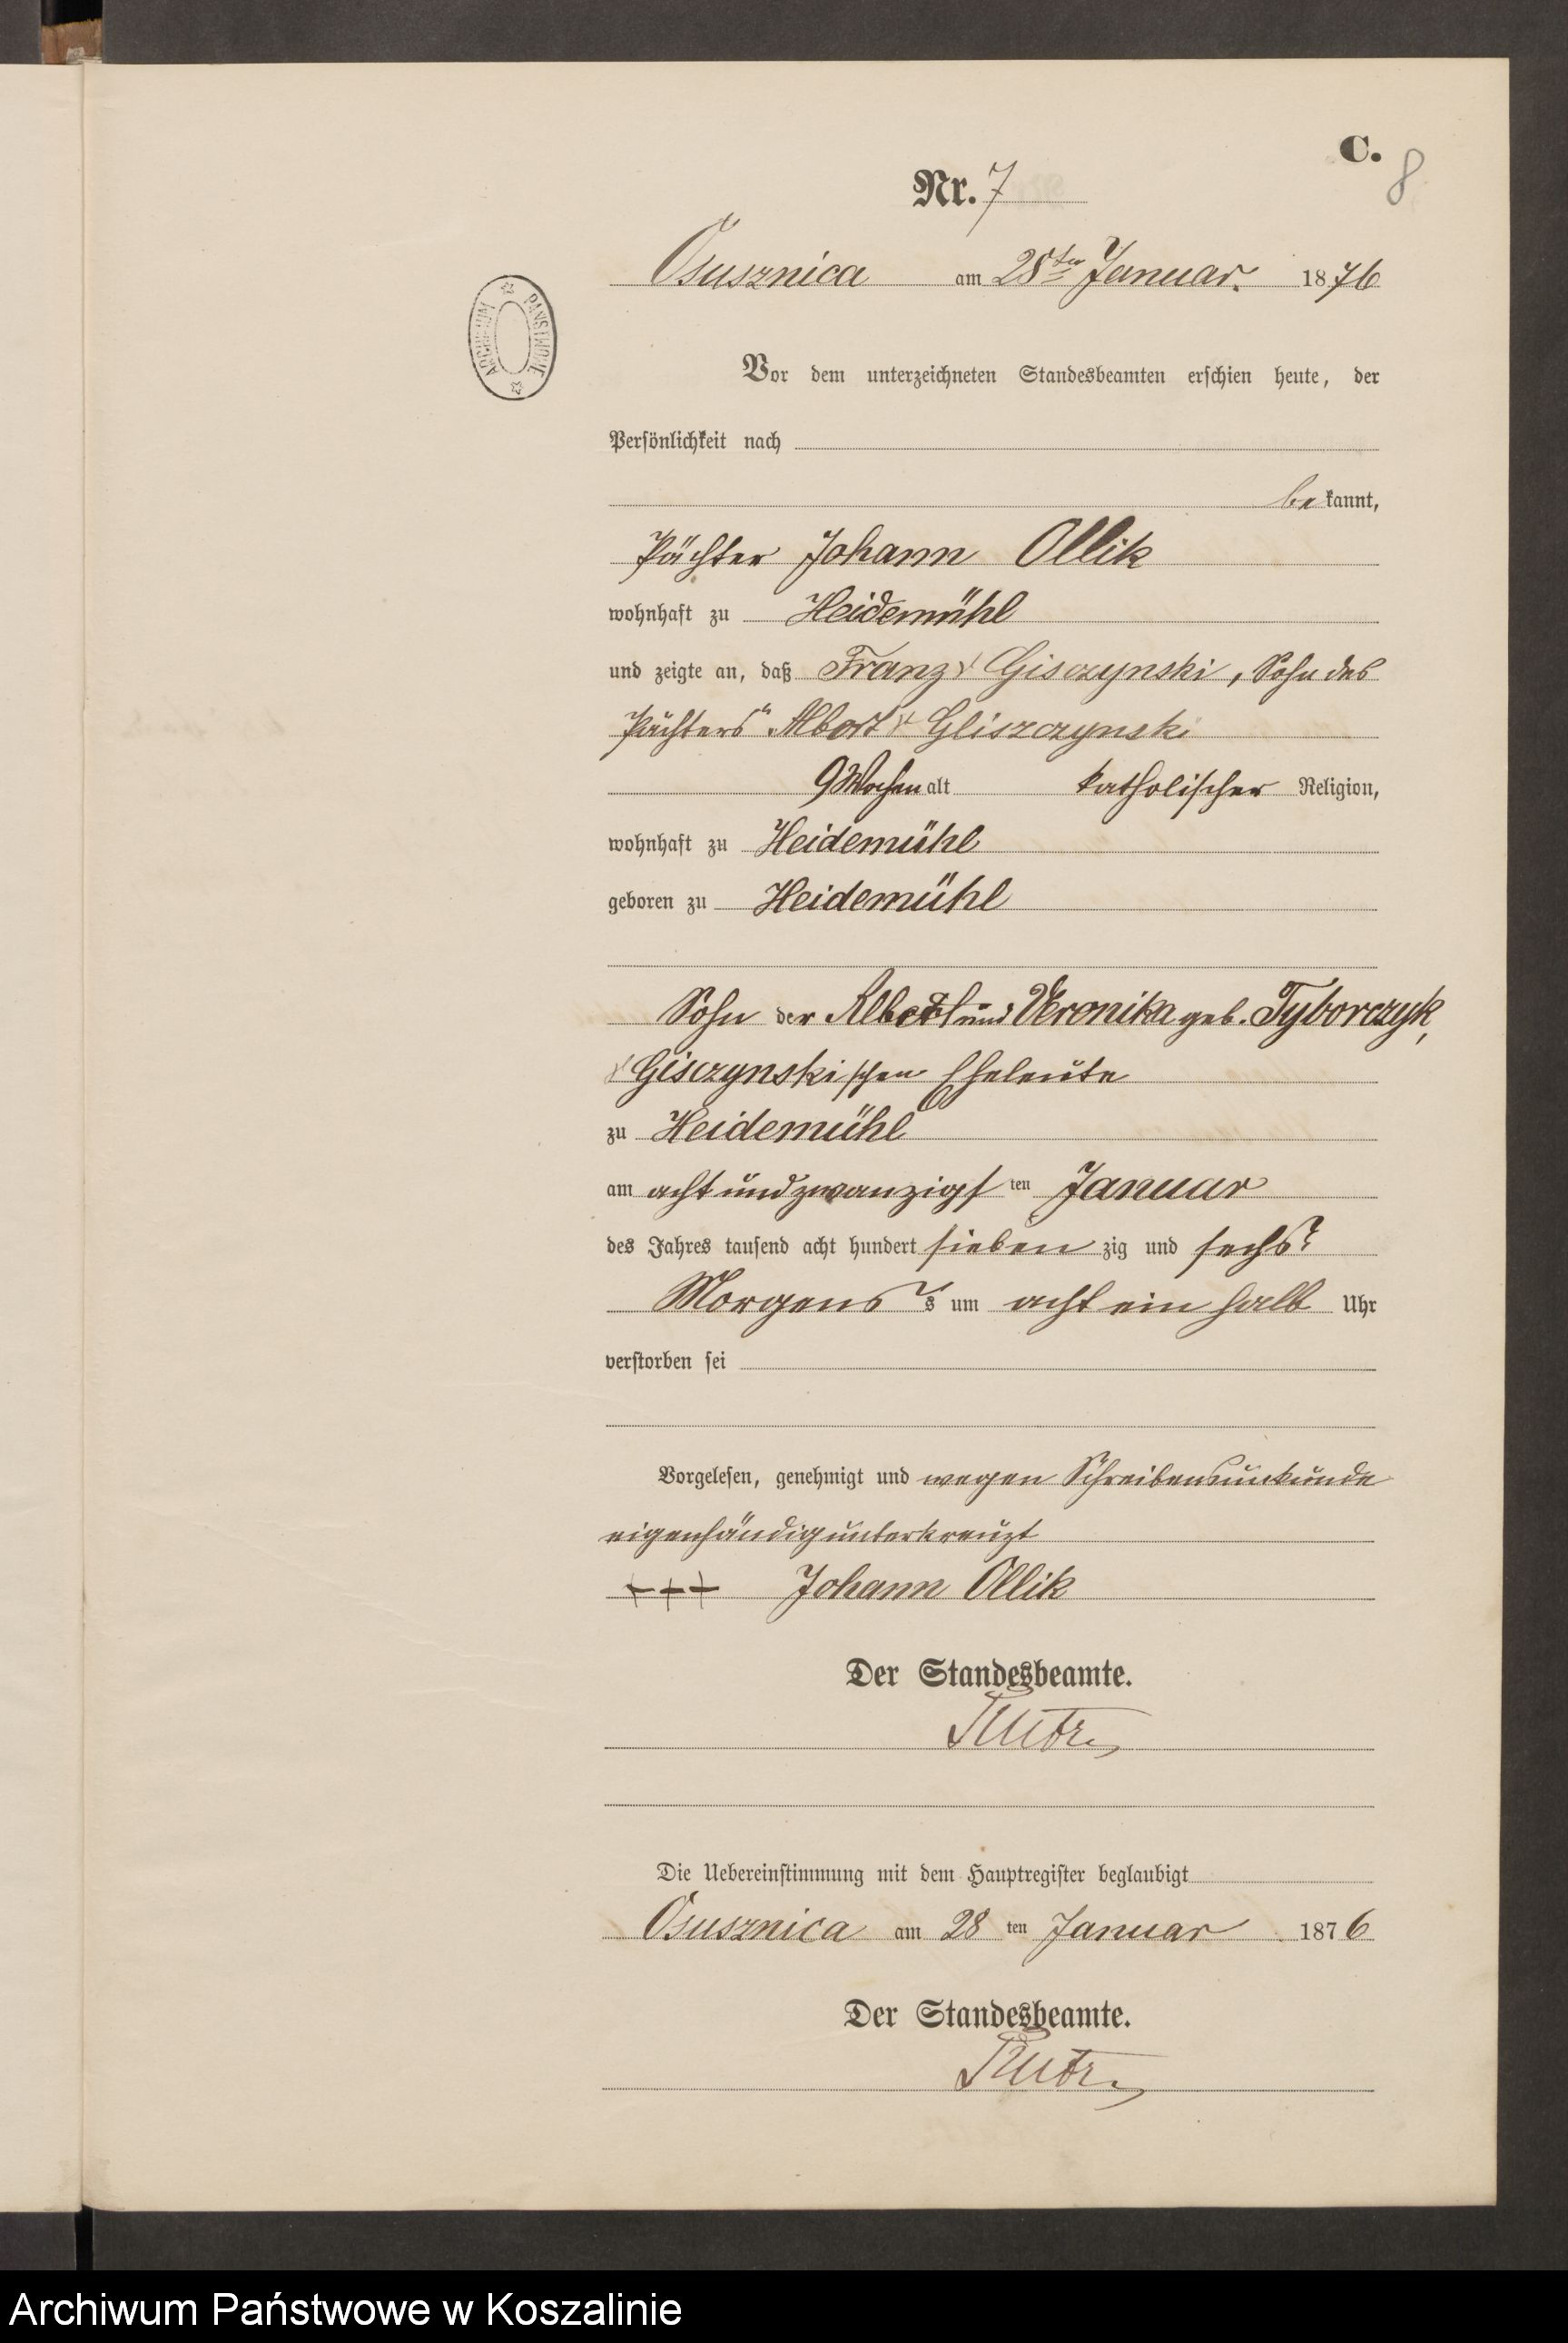 C.
8
Nr. 7
Osusznica am 28ten Januar. 1876
ARCHIWUM PAŃSTWOWE
Vor dem unterzeichneten Standesbeamten erschien heute, der
Persönlichkeit nach
be kannt,
Pächter Johann Ollik
wohnhaft zu Heidemühl
und zeigte an, daß Franz v Gisczynski, Sohn des
Pächters Albert v Gliszczynski
9 Wochen alt katholischer Religion,
wohnhaft zu Heidemühl
geboren zu Heidemühl
Sohn der Albert und Veronika geb. Tyborczyk,
v Gisczynskischen Eheleute
zu Heidemühl
am acht und zwanzigsten Januar
des Jahres tausend acht hundert sieben zig und sechs
Morgens um acht ein halb Uhr
verstorben sei
Vorgelesen, genehmigt und wegen Schreibensunkunde
eigenhändig unterkreuzt
+++ Johann Ollik
Der Standesbeamte.
Die Uebereinstimmung mit dem Hauptregister beglaubigt
Osusznica am 28 ten Januar 1876
Der Standesbeamte.
Archiwum Państwowe w Koszalinie